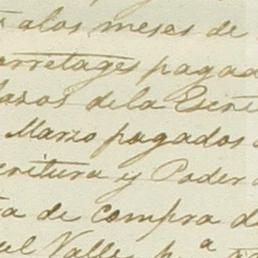 alos meses de
orretages pagad
lasos dela Escri
Marzo pagados
critura y Poder
ta de compra d
ul Valle p.a